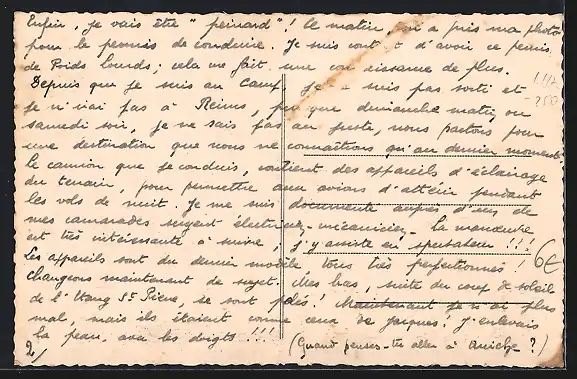 Enfin, je vais être "peinard"! Ce matin, on a pris ma photo
pour le permis de conduire. Je suis cont t d'avoir ce permis
de Poids lourds; cela me fait une con aissance de plus.
Depuis que je suis au camp, je suis pas sorti et
je n'irai pas à Reims, que dimanche matin, ou
samedi soir, je ne sais pas au juste, nous partons pour
une destination que nous ne connaîtrons qu'au dernier moment.
Le camion que je conduis, contient des appareils d'éclairage
du terrain, pour permettre aux avions d'atterrir pendant
les vols de nuit. Je me suis documenté auprès d'un de
mes camarades sergent électricien-mécanicien. La manœuvre
est très intéressante à suivre, j'y assiste en spectateur!!!
Les appareils sont du dernier modèle, tous très perfectionnés!
6€
Changeons maintenant de sujet. Mes bas, suite du coup de soleil
de l'Etang St Pierre, se sont pelés! Maintenant je n'ai plus
mal, mais ils étaient comme ceux de Jacques! J'enlevais
la peau, avec les doigts!!!
(Quand penses-tu aller à Aniche?)
2/